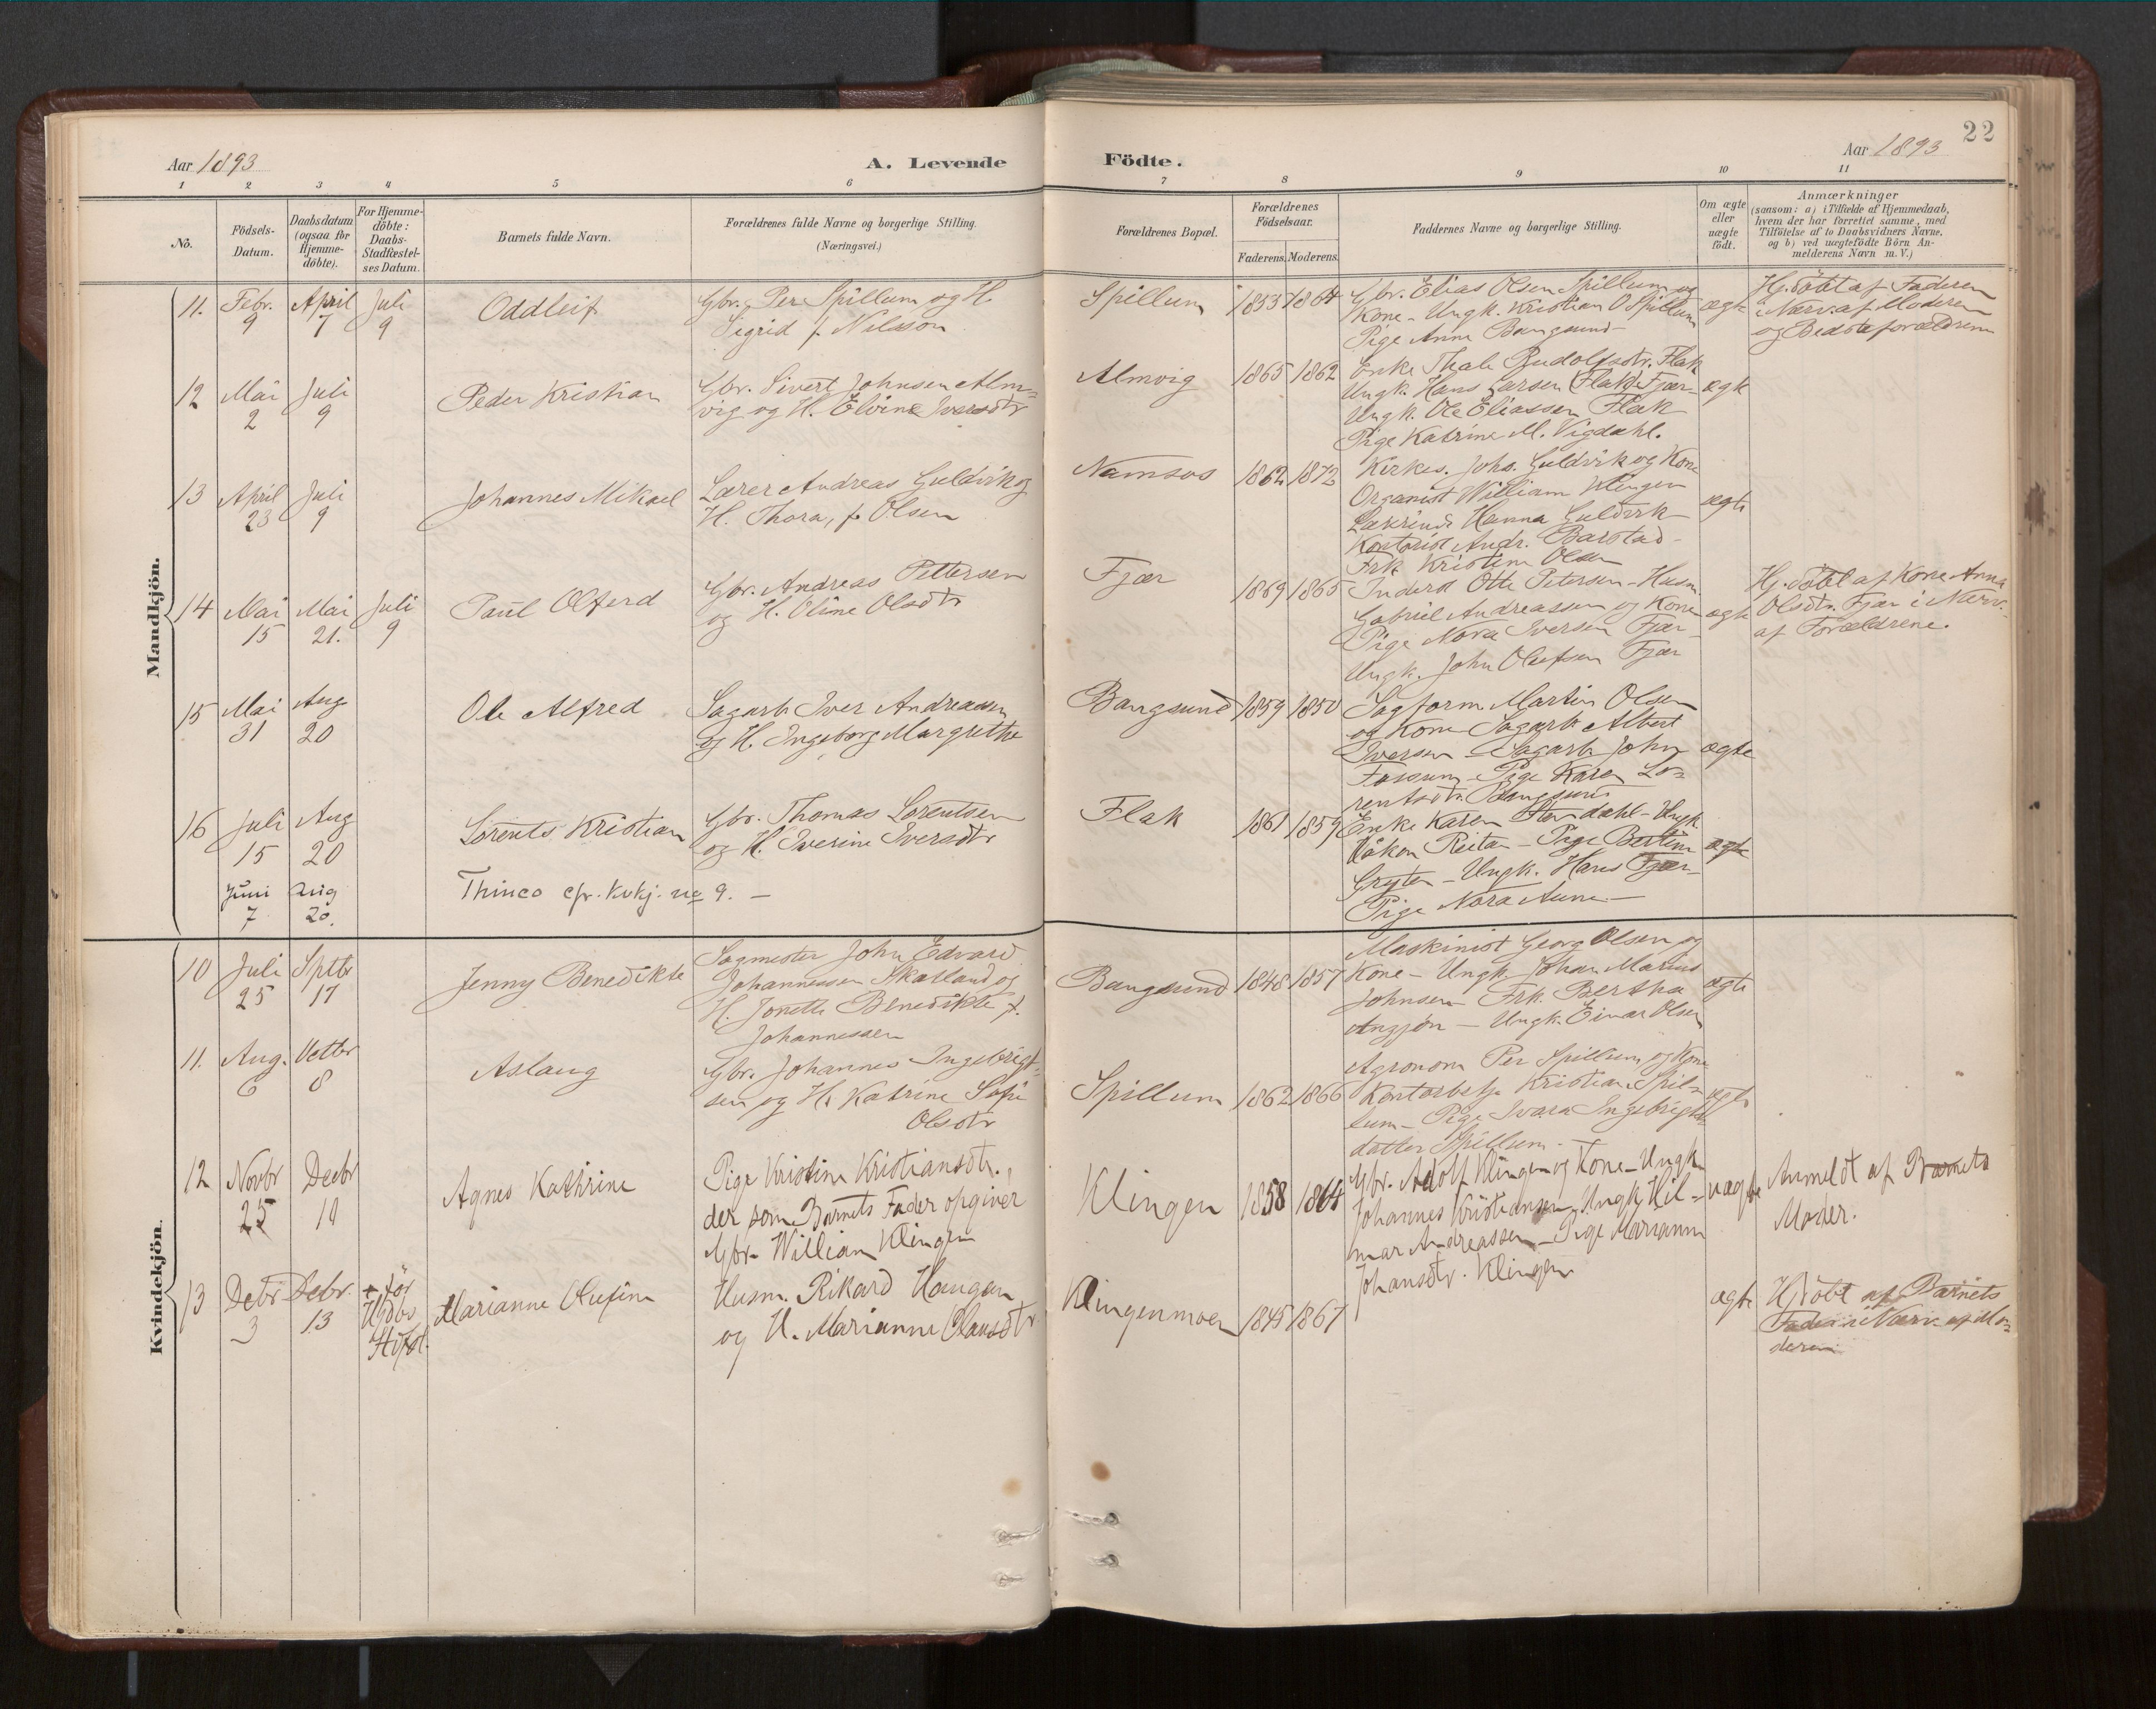 22
Aar 1893
A. Levende
Födte.
Aar 1893
1 2 3 4 5 6 7 8 9 10 11
No.
Födsels-
Datum.
Daabsdatum
(ogsaa för
Hjemme-
döbte).
For Hjemme-
döbte:
Daabs-
Stadfæstel-
ses Datum.
Barnets fulde Navn.
Forældrenes fulde Navne og borgerlige Stilling.
(Næringsvei.)
Forældrenes Bopæl.
Forældrenes
Födselsaar.
Faderens. Moderens.
Faddernes Navne og borgerlige Stilling.
Om ægte
eller
uægte
födt.
Anmærkninger
(saasom: a) i Tilfælde af Hjemmedaab,
hvem der har forrettet samme, med
Tilföielse af to Daabsvidners Navne,
og b) ved uægtefödte Börn An-
melderens Navn m. V.)
Mandkjön.
11. Febr. 9 April 7 Juli 9
Oddleif
Gbr. Per Spillum og H.
Sigrid f. Nilsson
Spillum 1853 1864
Gbr. Elias Olsen Spillum og
Kone - Ungk. Kristian O Spillum
Pige Anna Bangsund -
ægte
Hj. döbt af Faderen
i Nærv. af Moderen
og Bedsteforældrene
12 Mai 2 Juli 9
Peder Kristian
Gbr. Sivert Johnsen Alm-
vig og H. Elvine Iversdtr
Almvig 1865 1862
Enke Thale Rudolfsdtr. Flak
Ungk. Hans Larsen (Flak) Fjær -
Ungk. Ole Eliassen Flak
Pige Katrine M. Vigdahl.
ægte
13 April 23 Juli 9
Johannes Mikael
Lærer Andreas Guldvik og
H. Thora, f. Olsen
Namsos 1862 1872
Kirkes. Johs. Guldvik og Kone
Organist William Klingen
Lærerinde Hanna Guldvik
Kontorist Andr. Barstad -
Frk Kristine Olsen
ægte
14 Mai 15 Mai 21. Juli 9
Paul Olferd
Gbr. Andreas Pettersen
og H. Oline Olsdtr
Fjær 1869 1865
Inderst Otte Petersen - Husm.
Gabriel Andreassen og Kone
Pige Nora Iversen Fjær -
Ungk. John Olufsen Fjær
ægte
Hj. döbt af Kone Anna
Olsdtr. Fjær i Nærv.
af Forældrene.
15 Mai 31 Aug 20
Ole Alfred
Sagarb Iver Andreassen
og H. Ingeborg Margrethe
Bangsund 1859 1850
Sagform. Martin Olsen
og Kone Sagarb Albert
Iversen - Sagarb John
Fossum - Pige Karen Lo-
rentsdtr. Bangsund
ægte
16 Juli 15 Aug 20
Lorents Kristian
Gbr. Thomas Lorentsen
og H. Iverine Iversdtr
Flak 1861 1859
Enke Karen Stendahl - Ungk.
Håkon Reitan - Pige Bertine
Gryten - Ungk. Hans Fjær -
Pige Nora Aune -
ægte
Juni 7 Aug 20.
Thinco cfr. Kvkj. no 9. -
Kvindekjön.
10 Juli 25 Sptbr 17
Jenny Benedikte
Sagmester John Edvard
Johannessen Skarland og
H. Jonette Benedikte f.
Johannessen
Bangsund 1848 1857
Maskinist Georg Olsen og
Kone - Ungk. Johan Marius
Johnsen - Frk. Bertha
Angjön - Ungk. Einar Olsen
ægte
11. Aug. 6 Octbr 8
Aslaug
Gbr. Johannes Ingebrigt-
sen og H. Katrine Sofie
Olsdtr
Spillum 1862 1866
Agronom Per Spillum og Kone
Kontorbetj. Kristian Spil-
lum - Pige Ivara Ingebrigts-
datter Spillum -
ægte
12 Novbr 25 Decbr 10
Agnes Kathrine
Pige Kristine Kristiansdtr.,
der som Barnets Fader opgiver
Gbr. William Klingen
Klingen 1858 1864
Gbr. Adolf Klingen og Kone - Ungk
Johannes Kristiansen - Ungk. Hil-
mar Andreassen - Pige Marianne
Johansdtr. Klingen
uægte
Anmeldt af Barnets
Moder.
13 Debr 3 Debr. 13
för
Marianne Olufine
Husm. Rikard Haugan
og H. Marianne Olausdtr
Klingenmoen 1845 1867
ægte
Hj. döbt af Barnets
Fader i Nærv. af Mo-
deren